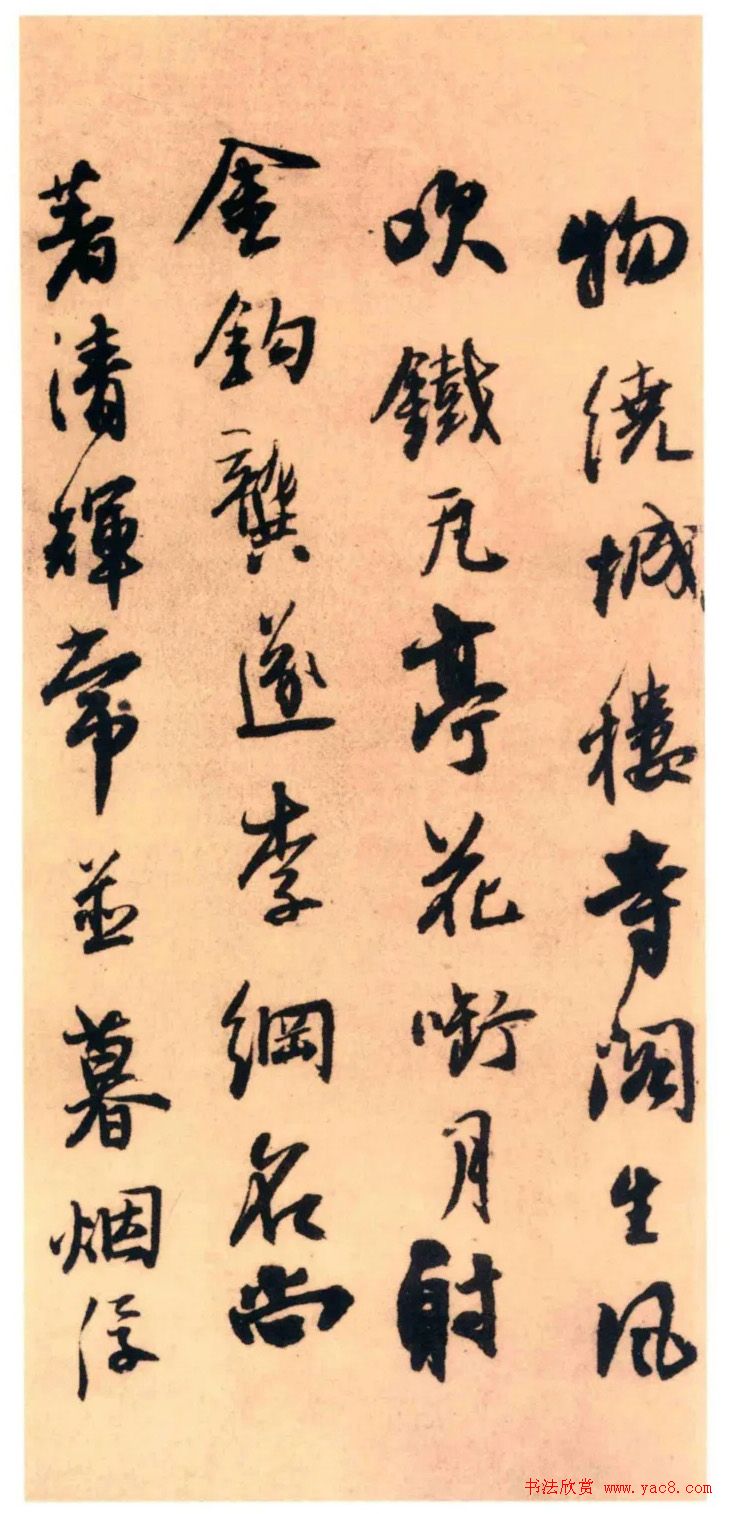 物繞城樓寺阁生風
吹鐵瓦亭花嘶月射
金鈎龔遂李綱名尚
著清輝常並暮烟浮
书法欣赏 www.yac8.com